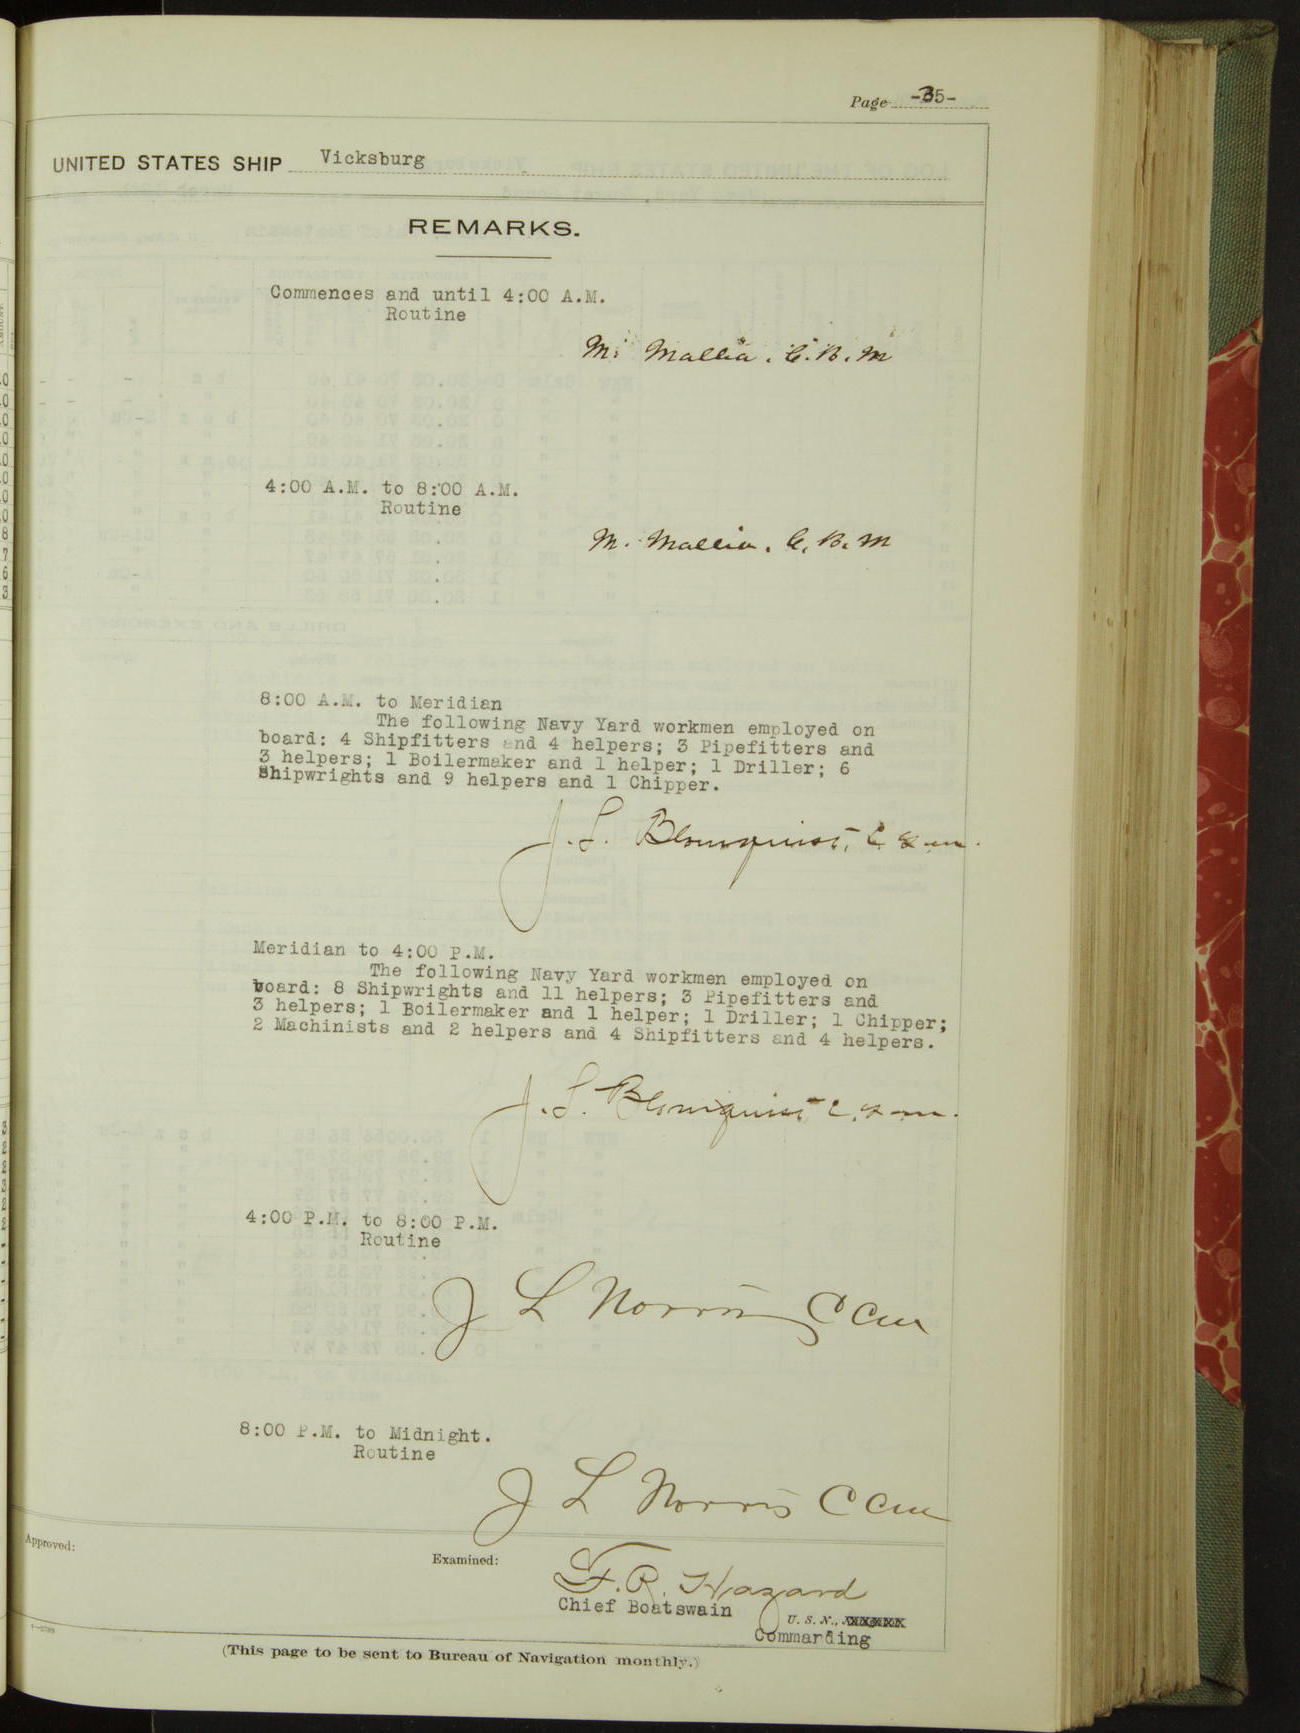 Page -35-
UNITED STATES SHIP Vicksburg
REMARKS.
Commences and until 4:00 A.M.
Routine
M. Mallia. C.B.M
4:00 A.M. to 8:00 A.M.
Routine
M. Mallia. C.B.M
8:00 A.M. to Meridian
The following Navy Yard workmen employed on
board: 4 Shipfitters and 4 helpers; 3 Pipefitters and
3 helpers; 1 Boilermaker and 1 helper; 1 Driller; 6
Shipwrights and 9 helpers and 1 Chipper.
J. S. Blomquist,
Meridian to 4:00 P.M.
The following Navy Yard workmen employed on
board: 8 Shipwrights and 11 helpers; 3 Pipefitters and
3 helpers; 1 Boilermaker and 1 helper; 1 Driller; 1 Chipper;
2 Machinists and 2 helpers and 4 Shipfitters and 4 helpers.
J. S. Blomquist
4:00 P.M. to 8:00 P.M.
Routine
J L Norris C C M
8:00 P.M. to Midnight.
Routine
J L Norris C C M
Approved:
Examined:
F. R. Hazard
Chief Boatswain
U. S. N.,
Commarding
(This page to be sent to Bureau of Navigation monthly.)